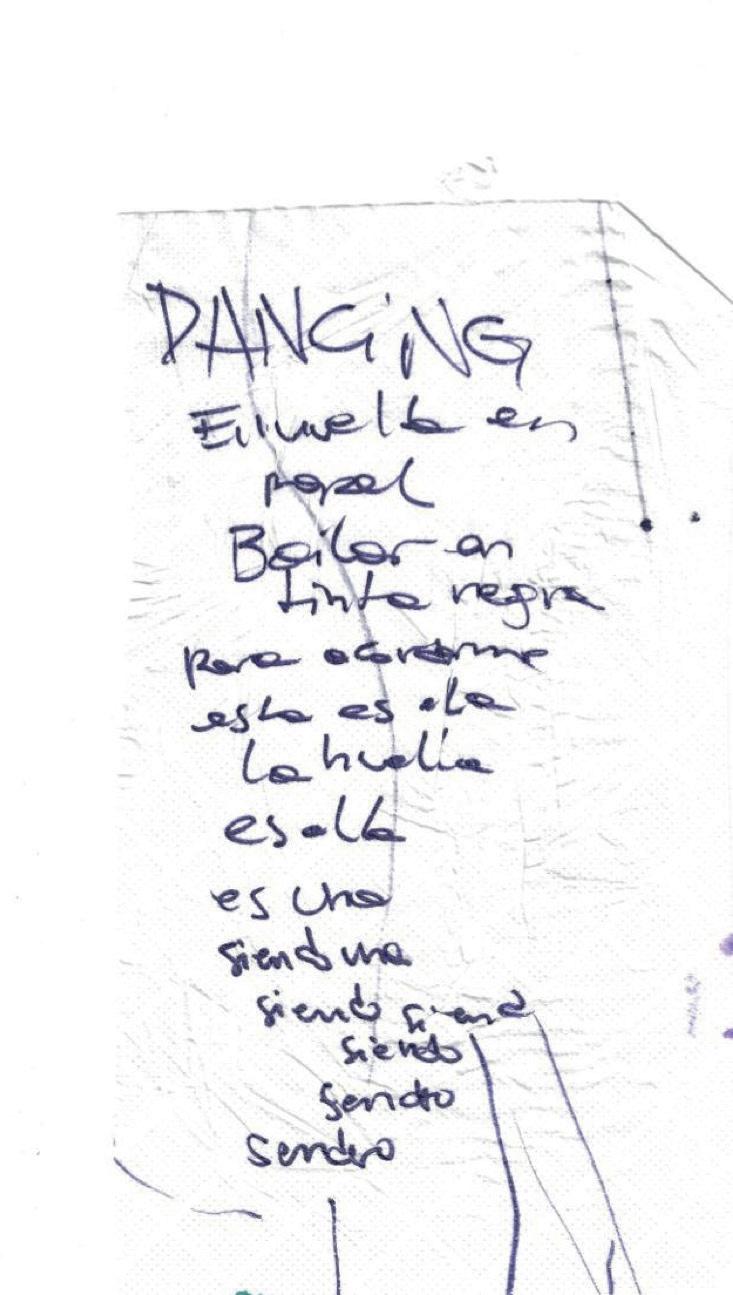 DANCiNG
Envuelta en
papel
Bailar en
tinta negra
para acordarme
esta es
la huella
es
es una
siendo una
siendo siendo
siendo
sendo
sendo